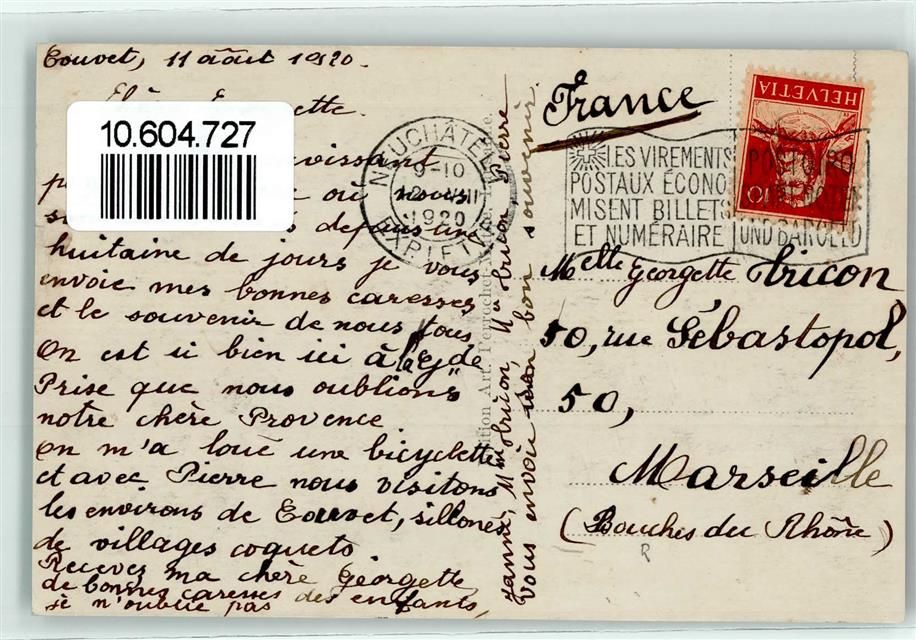 Couvet, 11 août 1920.
ette.
10.604.727
vissant
ou nous
depuis une
huitaine de jours je vous
envoie mes bonnes caresses
et le souvenir de nous tous
On est si bien ici à
Prise que nous oublions
notre chère Provence
On m'a loué une bicyclette
et avec Pierre nous visitons
les environs de Couvet, sillonés
de villages coquets
Recevez ma chère Georgette
de bonnes caresses des enfants,
je n'oublie pas
vous envoie un bon souvenir.
NEUCHÂTEL
9-10
1920
LES VIREMENTS
POSTAUX ÉCONO
MISENT BILLETS
ET NUMÉRAIRE
UND BARGELD
HELVETIA
10
France
Melle Georgette
50, rue Sébastopol,
50,
Marseille
(Bouches du Rhône)